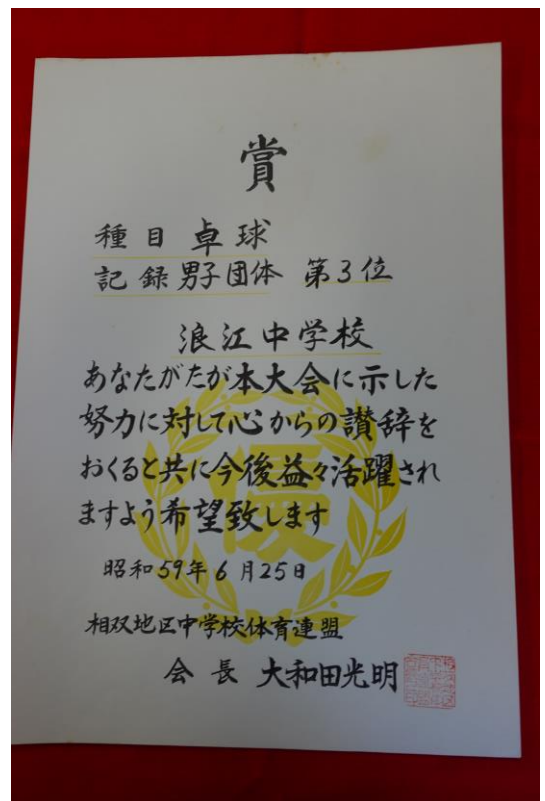 賞
種目 卓球
記録 男子団体 第3位
浪江中学校
あなたがたが本大会に示した
努力に対して心からの讃辞を
おくると共に今後益々活躍され
ますよう希望致します
優
昭和59年6月25日
相双地区中学校体育連盟
会長 大和田光明